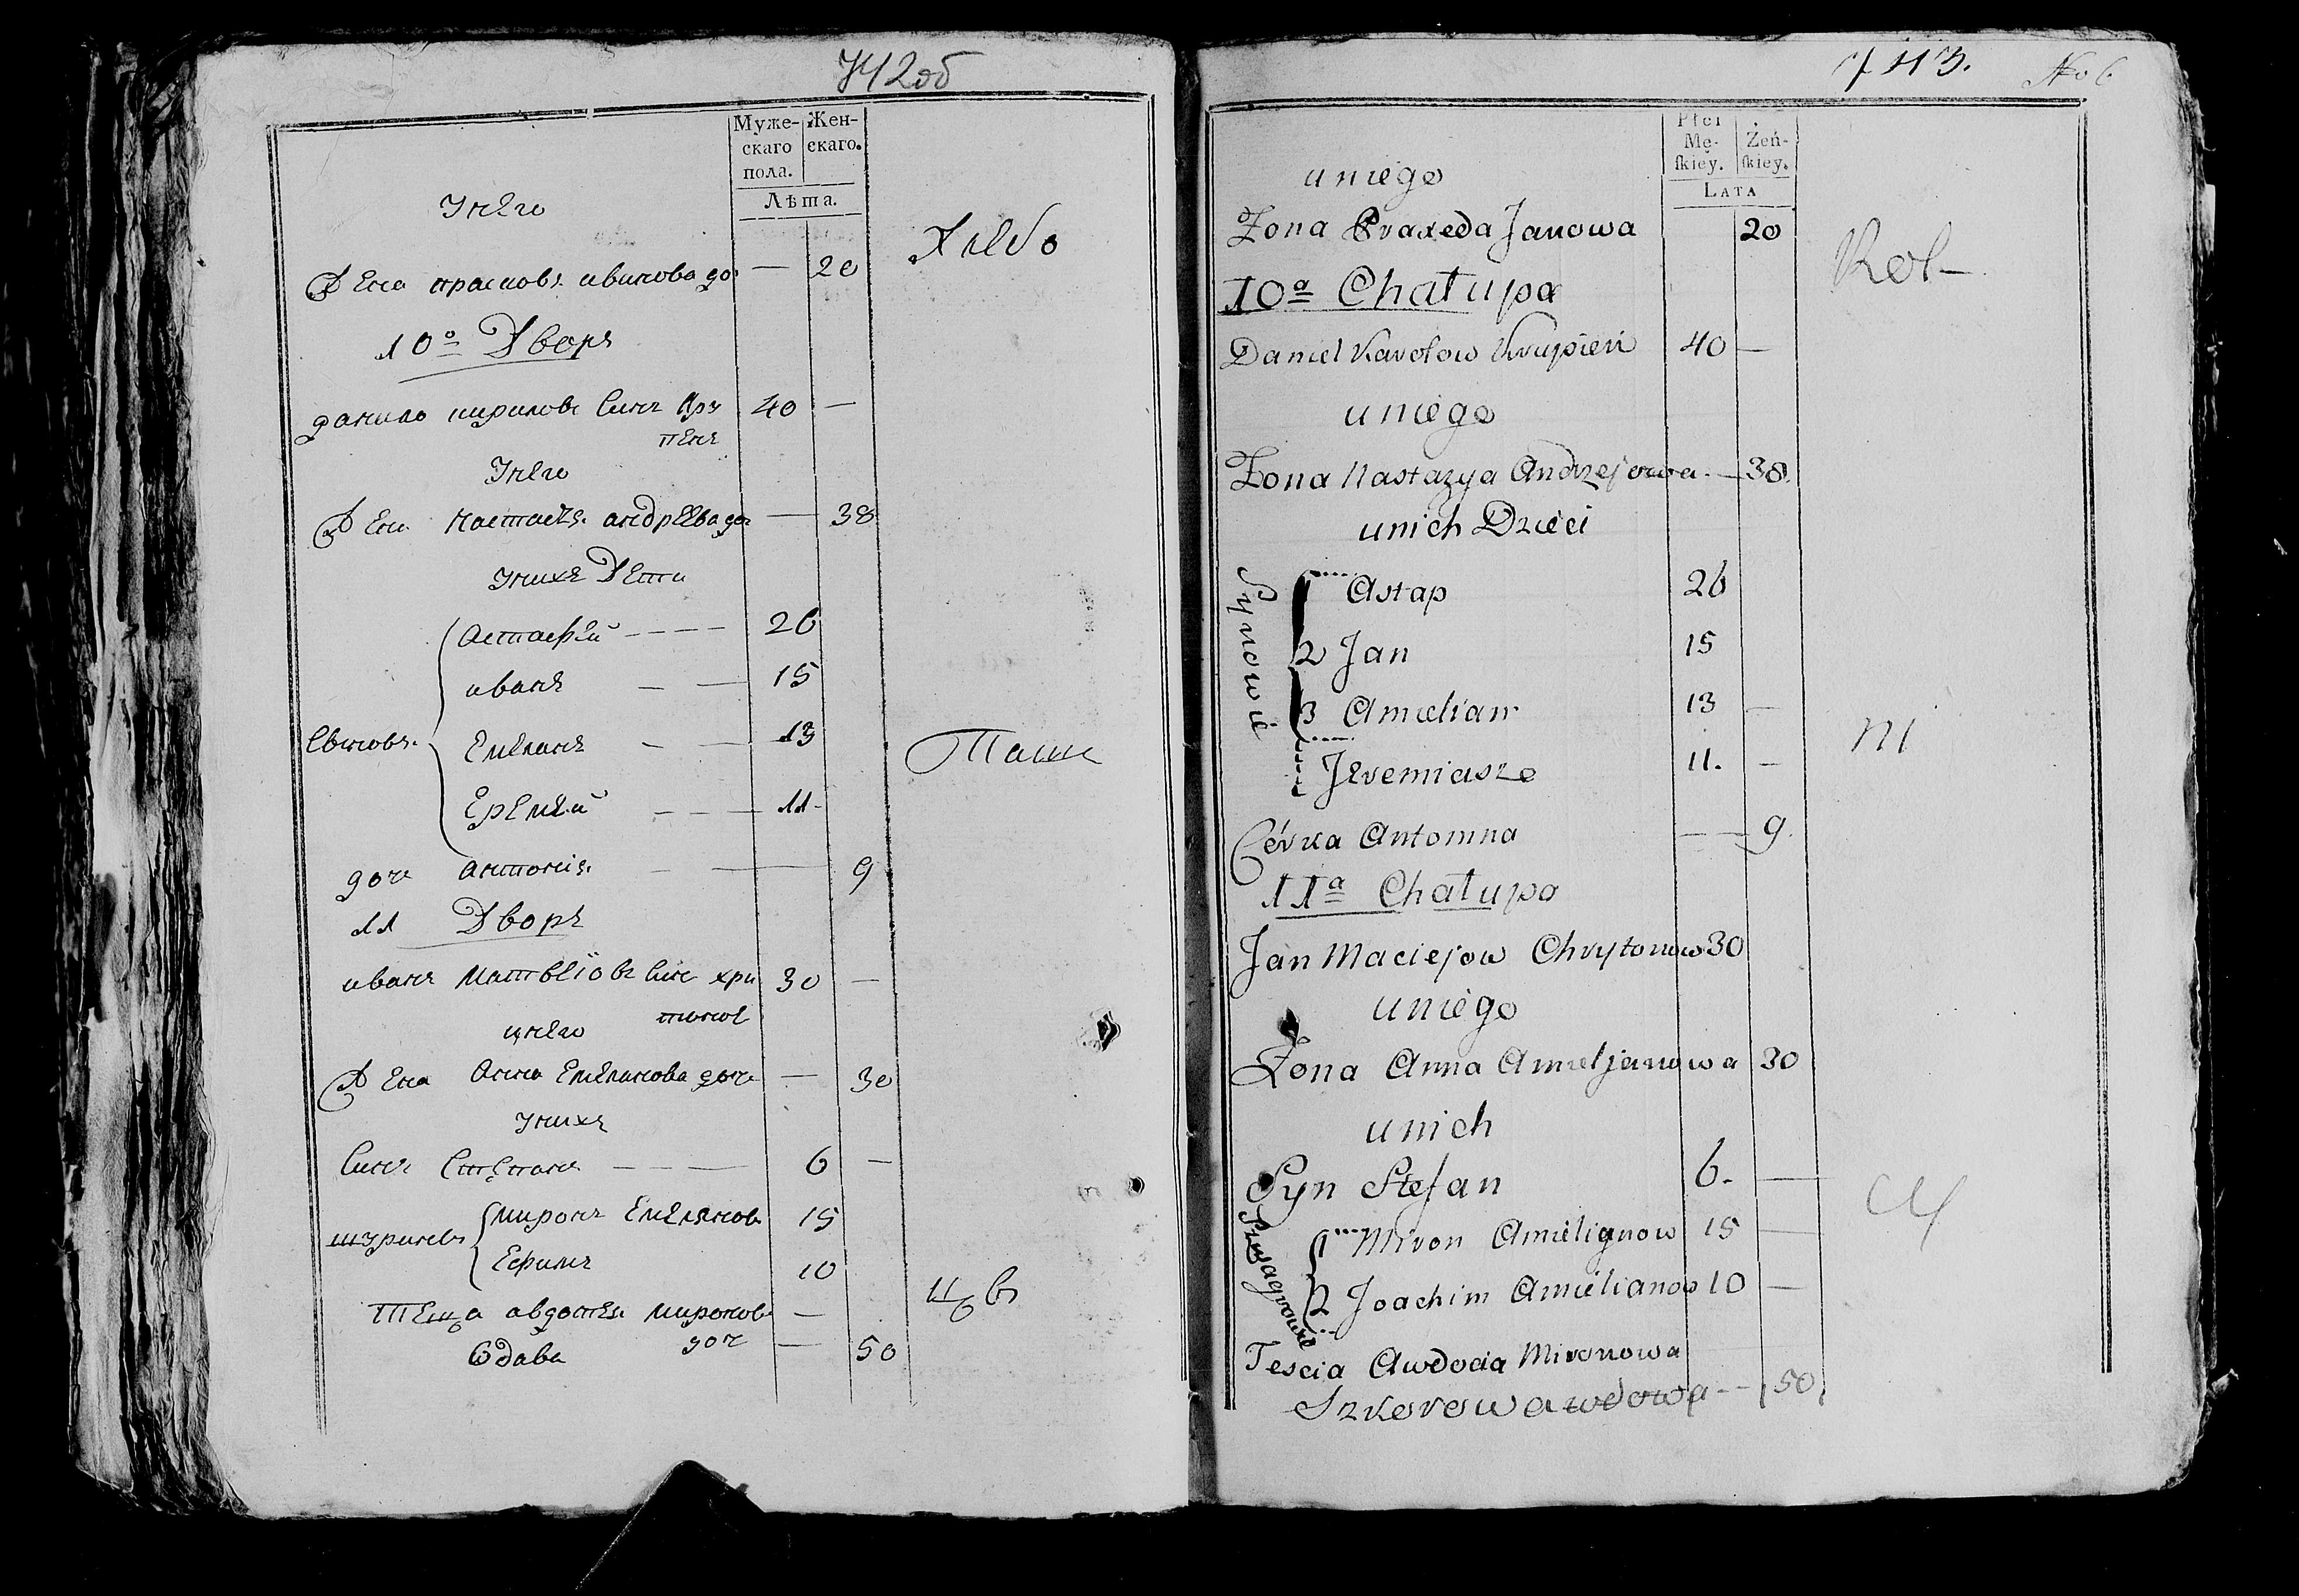 742об
Муже-
скаго
пола.
Жен-
скаго.
Лѣта.
Унего
Жена прасковя иванова до — 20
Хлебо
10º Дворъ
данило кириловъ синъ кру 40 —
пенъ
Унего
Жена Настася андреева доч — 38
Унихъ Дети
Астафей 26
иванъ 15
Синовя
Емелянъ 13
Таше
Еремей 11
доч антонія 9
11 Дворъ
иванъ Матвеіовъ синъ хри 30 —
тинов
унего
Жена Анна Емелянова доч — 30
Унихъ
Синъ Степанъ 6 —
шуринъ
миронъ Емеляновъ 15
Ефимъ 10
цовъ
Теща авдотея миронов —
доч
вдава — 50
743.
No 6
Płci
Mę-
ſkiey.
Żeń-
ſkiey.
LATA
u niego
Zona Praxeda Janowa 20
Rol-
10ª Chałupa
Daniel Karolow Krupień 40 —
u niego
Zona Nastazya Andrzejowa — 38
u nich Dzieci
Synowie
1 Astap 26
2 Jan 15
3 Amielian 13 —
ni
Jeremiasz 11. —
Córka Antonina — 9.
11ª Chałupa
Jan Maciejow Chrytonow 30
u niego
Zona Anna Amieljanowa 30
u nich
Syn Stefan 6. —
cy
Szwagrowie
1 Miron Amielianow 15 —
2 Joachim Amielianow 10 —
Tescia Awdocia Mironowa
Szkorowa wdowa — 50